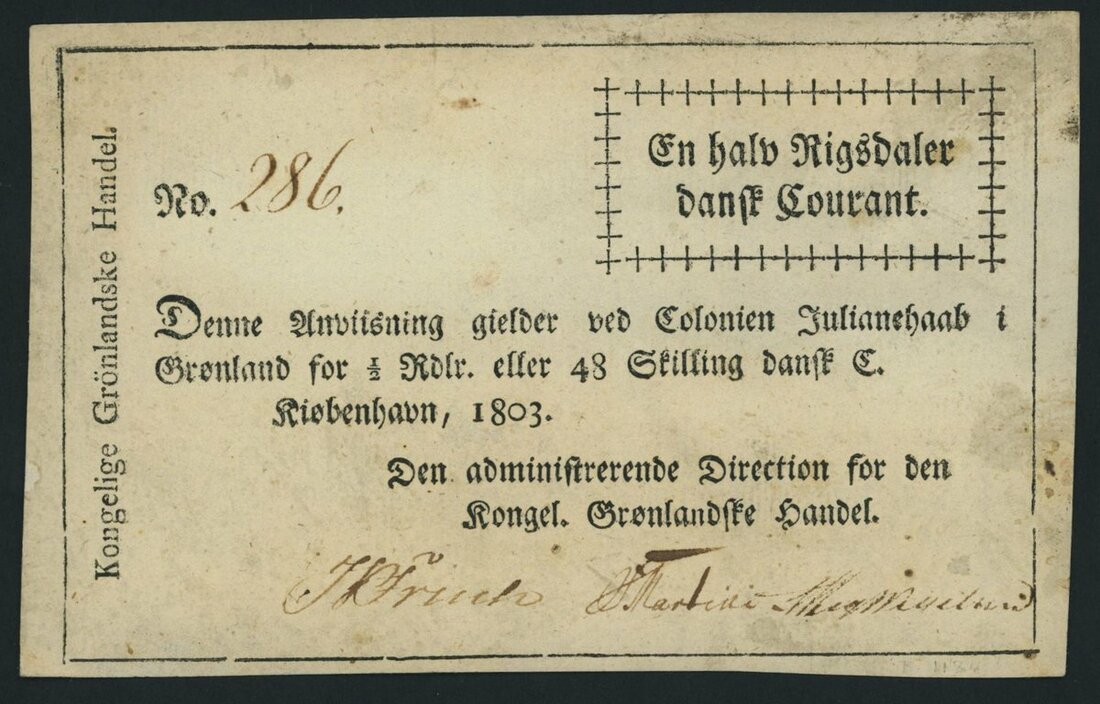 Kongelige Grönlandske Handel.
No. 286.
En halv Rigsdaler
dansk Courant.
Denne Anviisning gielder ved Colonien Julianehaab i
Grønland for ½ Rdlr. eller 48 Skilling dansk C.
Kiøbenhavn, 1803.
Den administrerende Direction for den
Kongel. Grønlandske Handel.